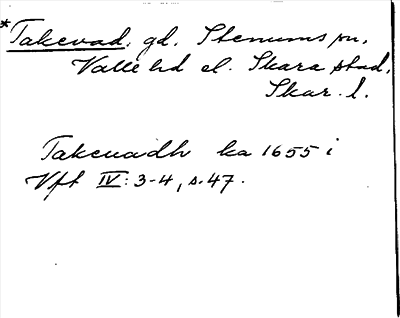 *Takevad, gd, Stenums sn,
Valle hd el. Skara stad,
Skar. l.
Takevadh ka 1655 i
Vft IV: 3-4, s. 47.